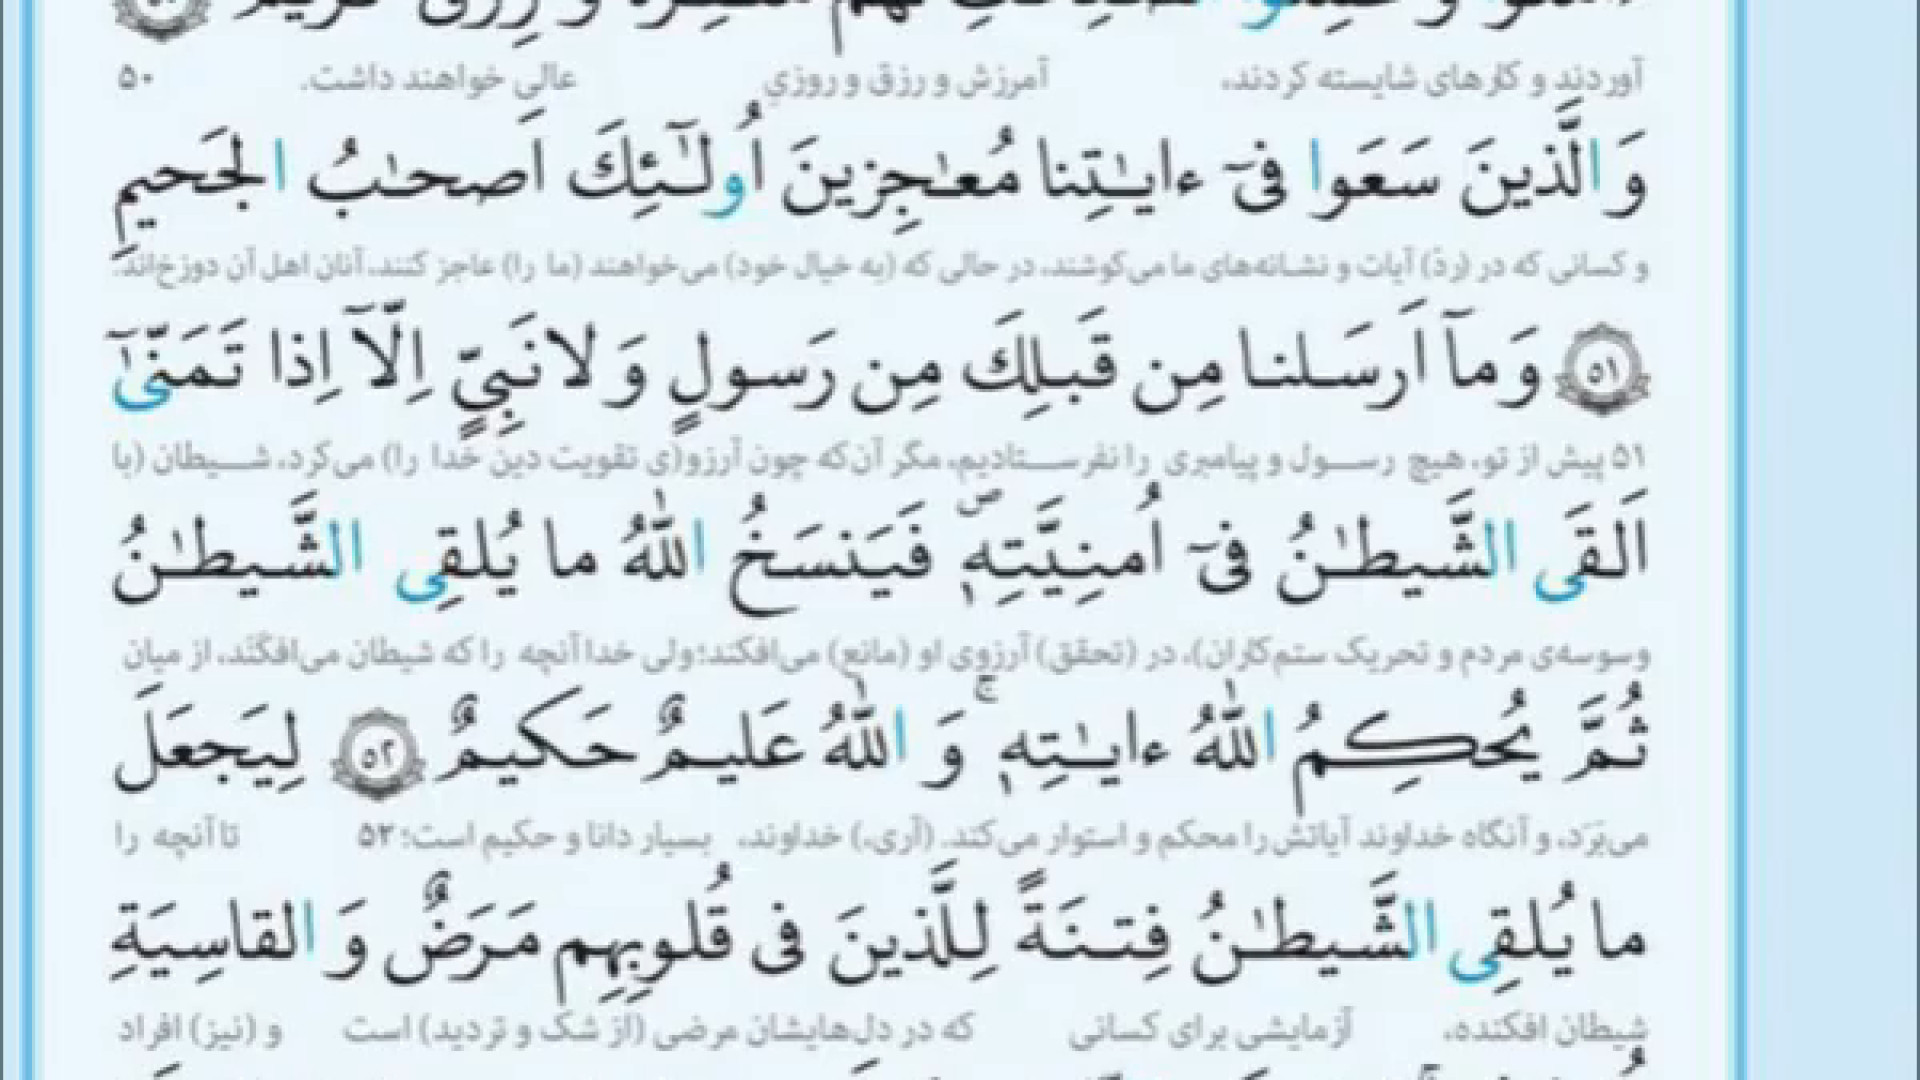 آوردند و کارهای شایسته کردند، آمرزش و رزق و روزیِ عالی خواهند داشت. ۵۰
وَ الَّذینَ سَعَوا فیٓ ءایـٰتِنا مُعـٰجِزینَ اُولـٰٓئِكَ اَصحـٰبُ الجَحیمِ
و کسانی که در (ردّ) آیات و نشانه‌های ما می‌کوشند، در حالی که (به خیال خود) می‌خواهند (ما را) عاجز کنند، آنان اهل آن دوزخ‌اند.
﴿۵۱﴾ وَ مآ اَرسَلنا مِن قَبلِكَ مِن رَسولٍ وَ لا نَبِیٍّ اِلّآ اِذا تَمَنّیٰٓ
۵۱ پیش از تو، هیچ رسول و پیامبری را نفرستادیم، مگر آن‌که چون آرزو(ی تقویت دین خدا را) می‌کرد، شیطان (با
اَلقَی الشَّیطـٰنُ فیٓ اُمنِیَّتِهٖۖ فَیَنسَخُ اللّٰهُ ما یُلقِی الشَّیطـٰنُ
وسوسه‌ی مردم و تحریک ستم‌کاران)، در (تحقق) آرزوی او (مانع) می‌افکند؛ ولی خدا آنچه را که شیطان می‌افکَنَد، از میان
ثُمَّ یُحکِمُ اللّٰهُ ءایـٰتِهٖۚ وَ اللّٰهُ عَلیمٌ حَکیمٌ ﴿۵۲﴾ لِیَجعَلَ
می‌بَرَد، و آنگاه خداوند آیاتش را محکم و استوار می‌کند. (آری،) خداوند، بسیار دانا و حکیم است؛ ۵۲ تا آنچه را
ما یُلقِی الشَّیطـٰنُ فِتنَةً لِلَّذینَ فی قُلوبِهِم مَرَضٌ وَ القاسِیَةِ
شیطان افکنده، آزمایشی برای کسانی که در دل‌هایشان مرضی (از شک و تردید) است و (نیز) افراد